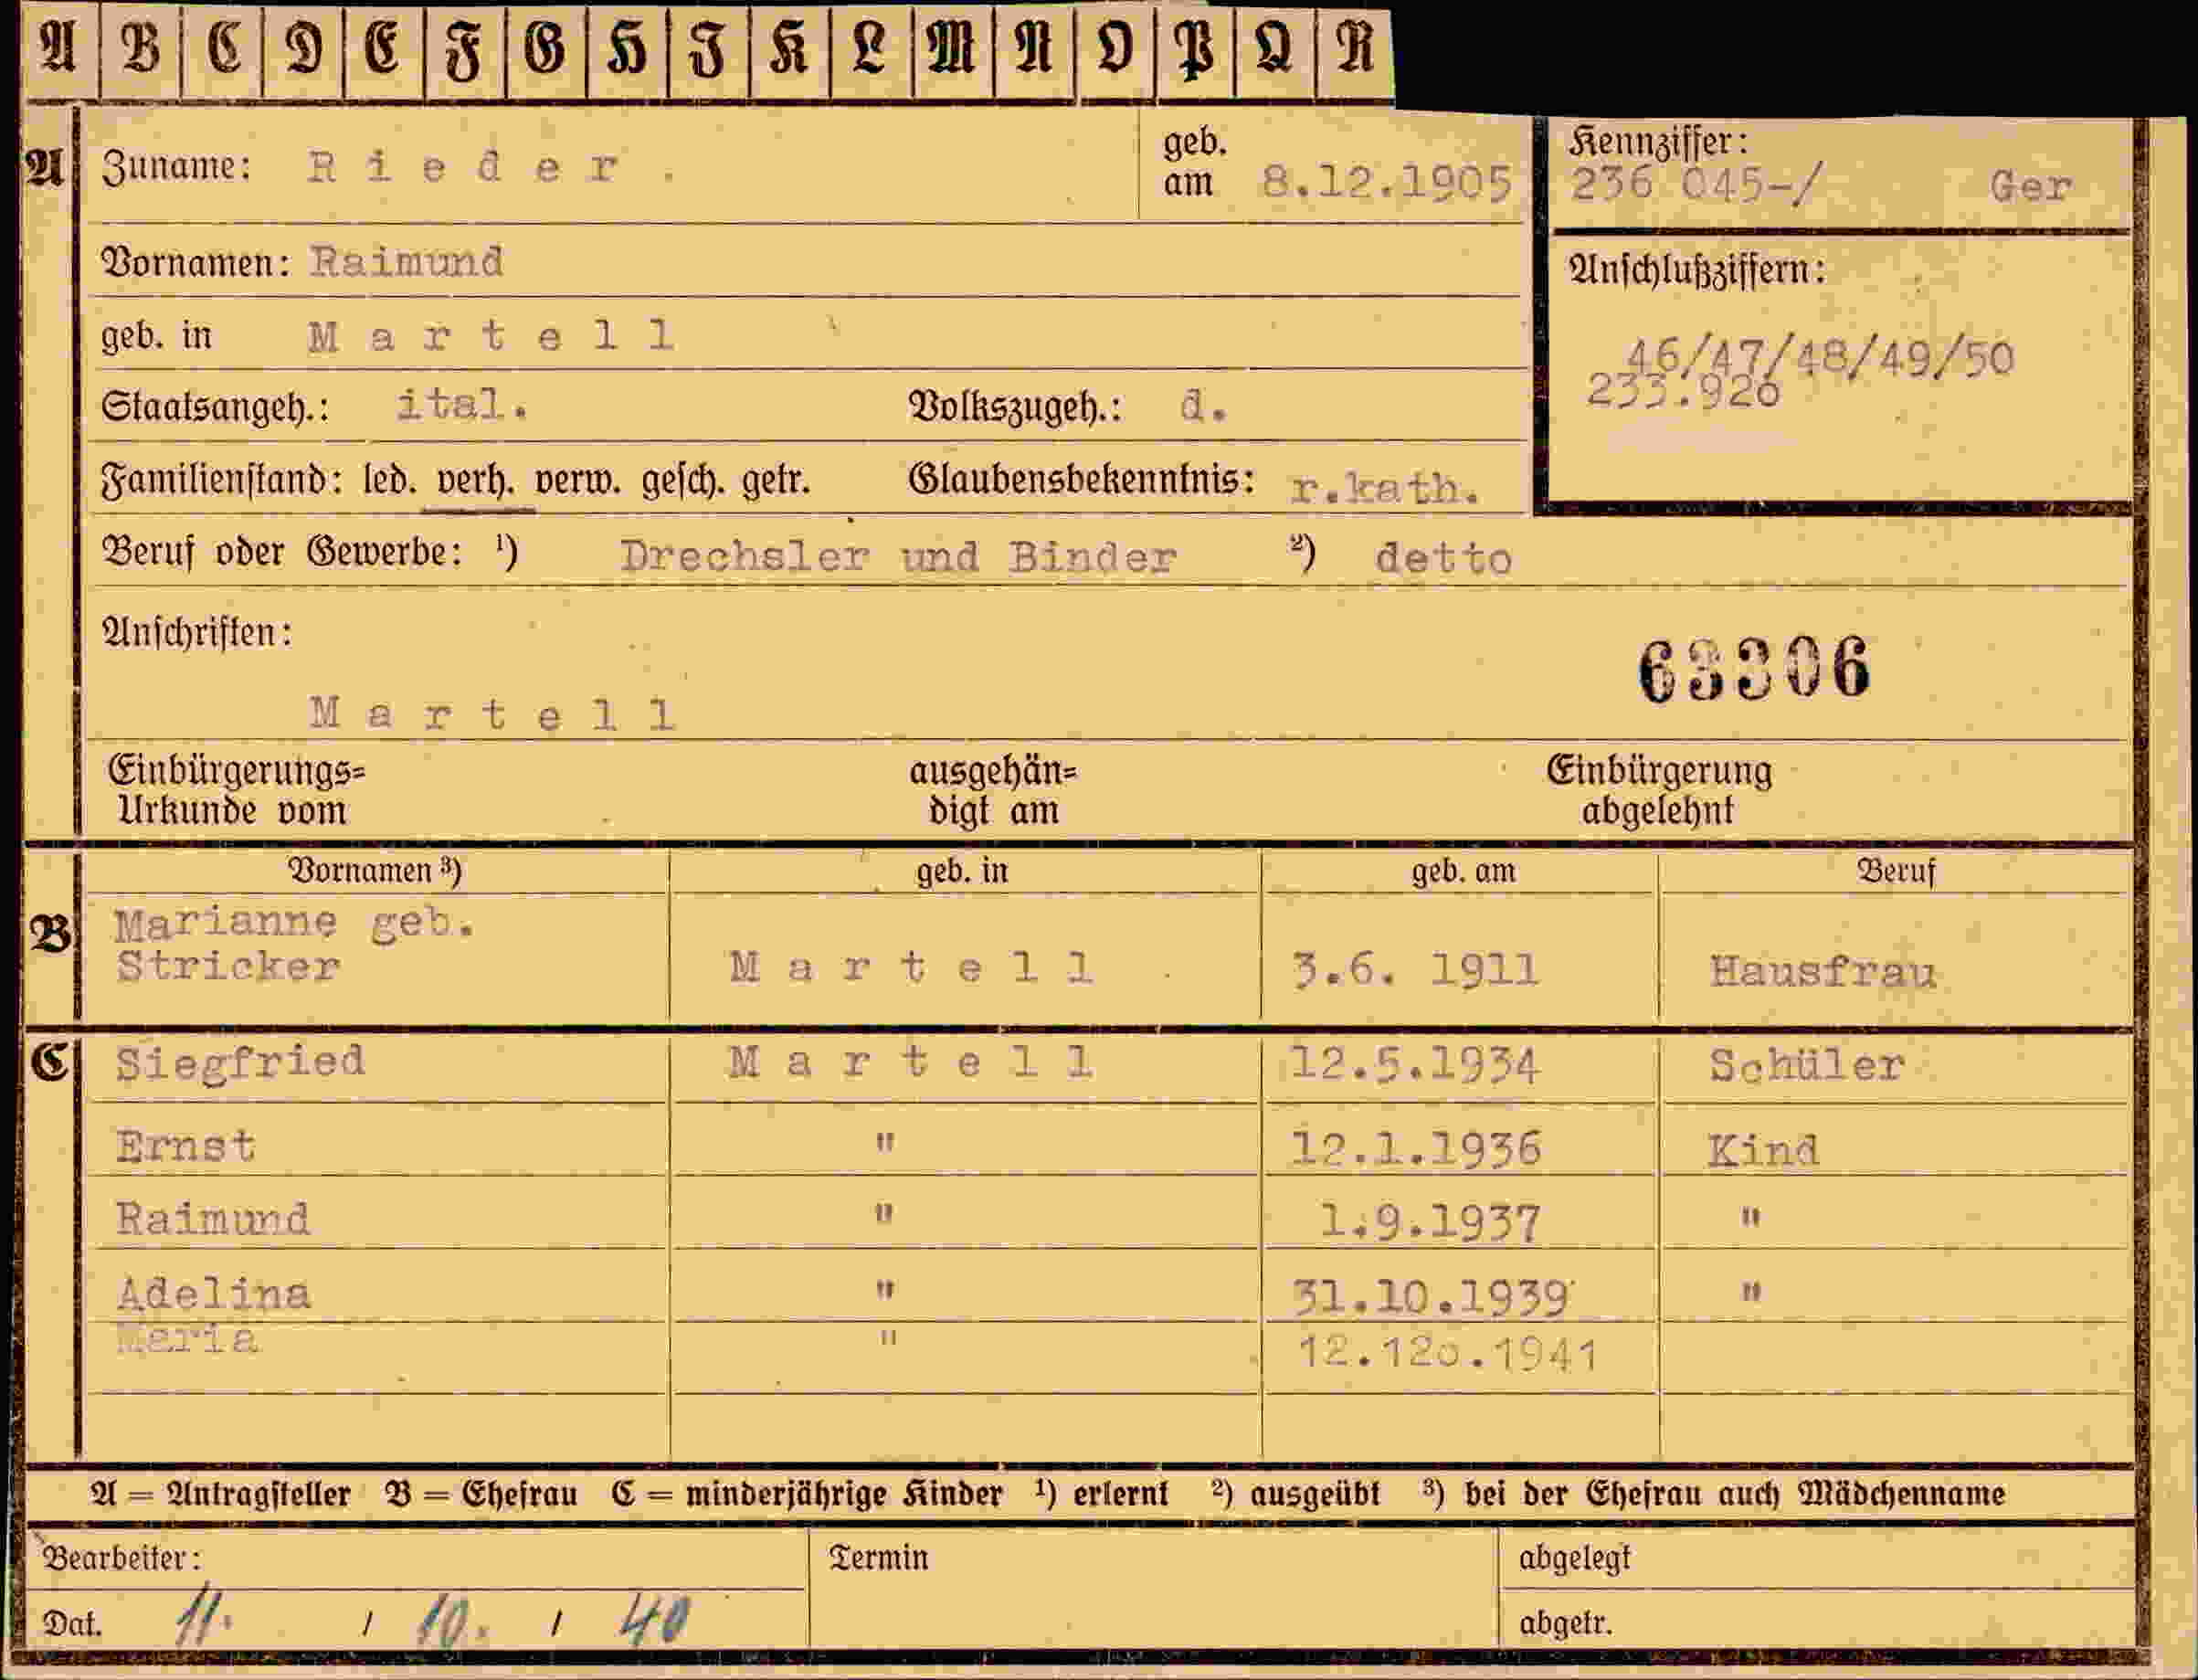 A B C D E F G H J K L M N O P Q R
A Zuname: Rieder. geb. am 8.12.1905 Kennziffer: 236 045-/ Ger
Vornamen: Raimund
Anschlußziffern:
geb. in Martell
46/47/48/49/50
233.926
Staatsangeh.: ital. Volkszugeh.: d.
Familienstand: led. verh. verw. gesch. getr. Glaubensbekenntnis: r.kath.
Beruf oder Gewerbe: ¹) Drechsler und Binder ²) detto
Anschriften:
63306
Martell
Einbürgerungs= ausgehän= Einbürgerung
Urkunde vom digt am abgelehnt
Vornamen ³) geb. in geb. am Beruf
B Marianne geb.
Stricker Martell 3.6. 1911 Hausfrau
C Siegfried Martell 12.5.1934 Schüler
Ernst " 12.1.1936 Kind
Raimund " 1.9.1937 "
Adelina " 31.10.1939 "
Maria " 12.12o.1941
A = Antragsteller B = Ehefrau C = minderjährige Kinder ¹) erlernt ²) ausgeübt ³) bei der Ehefrau auch Mädchenname
Bearbeiter: Termin abgelegt
Dat. 11. / 10. / 40 abgetr.